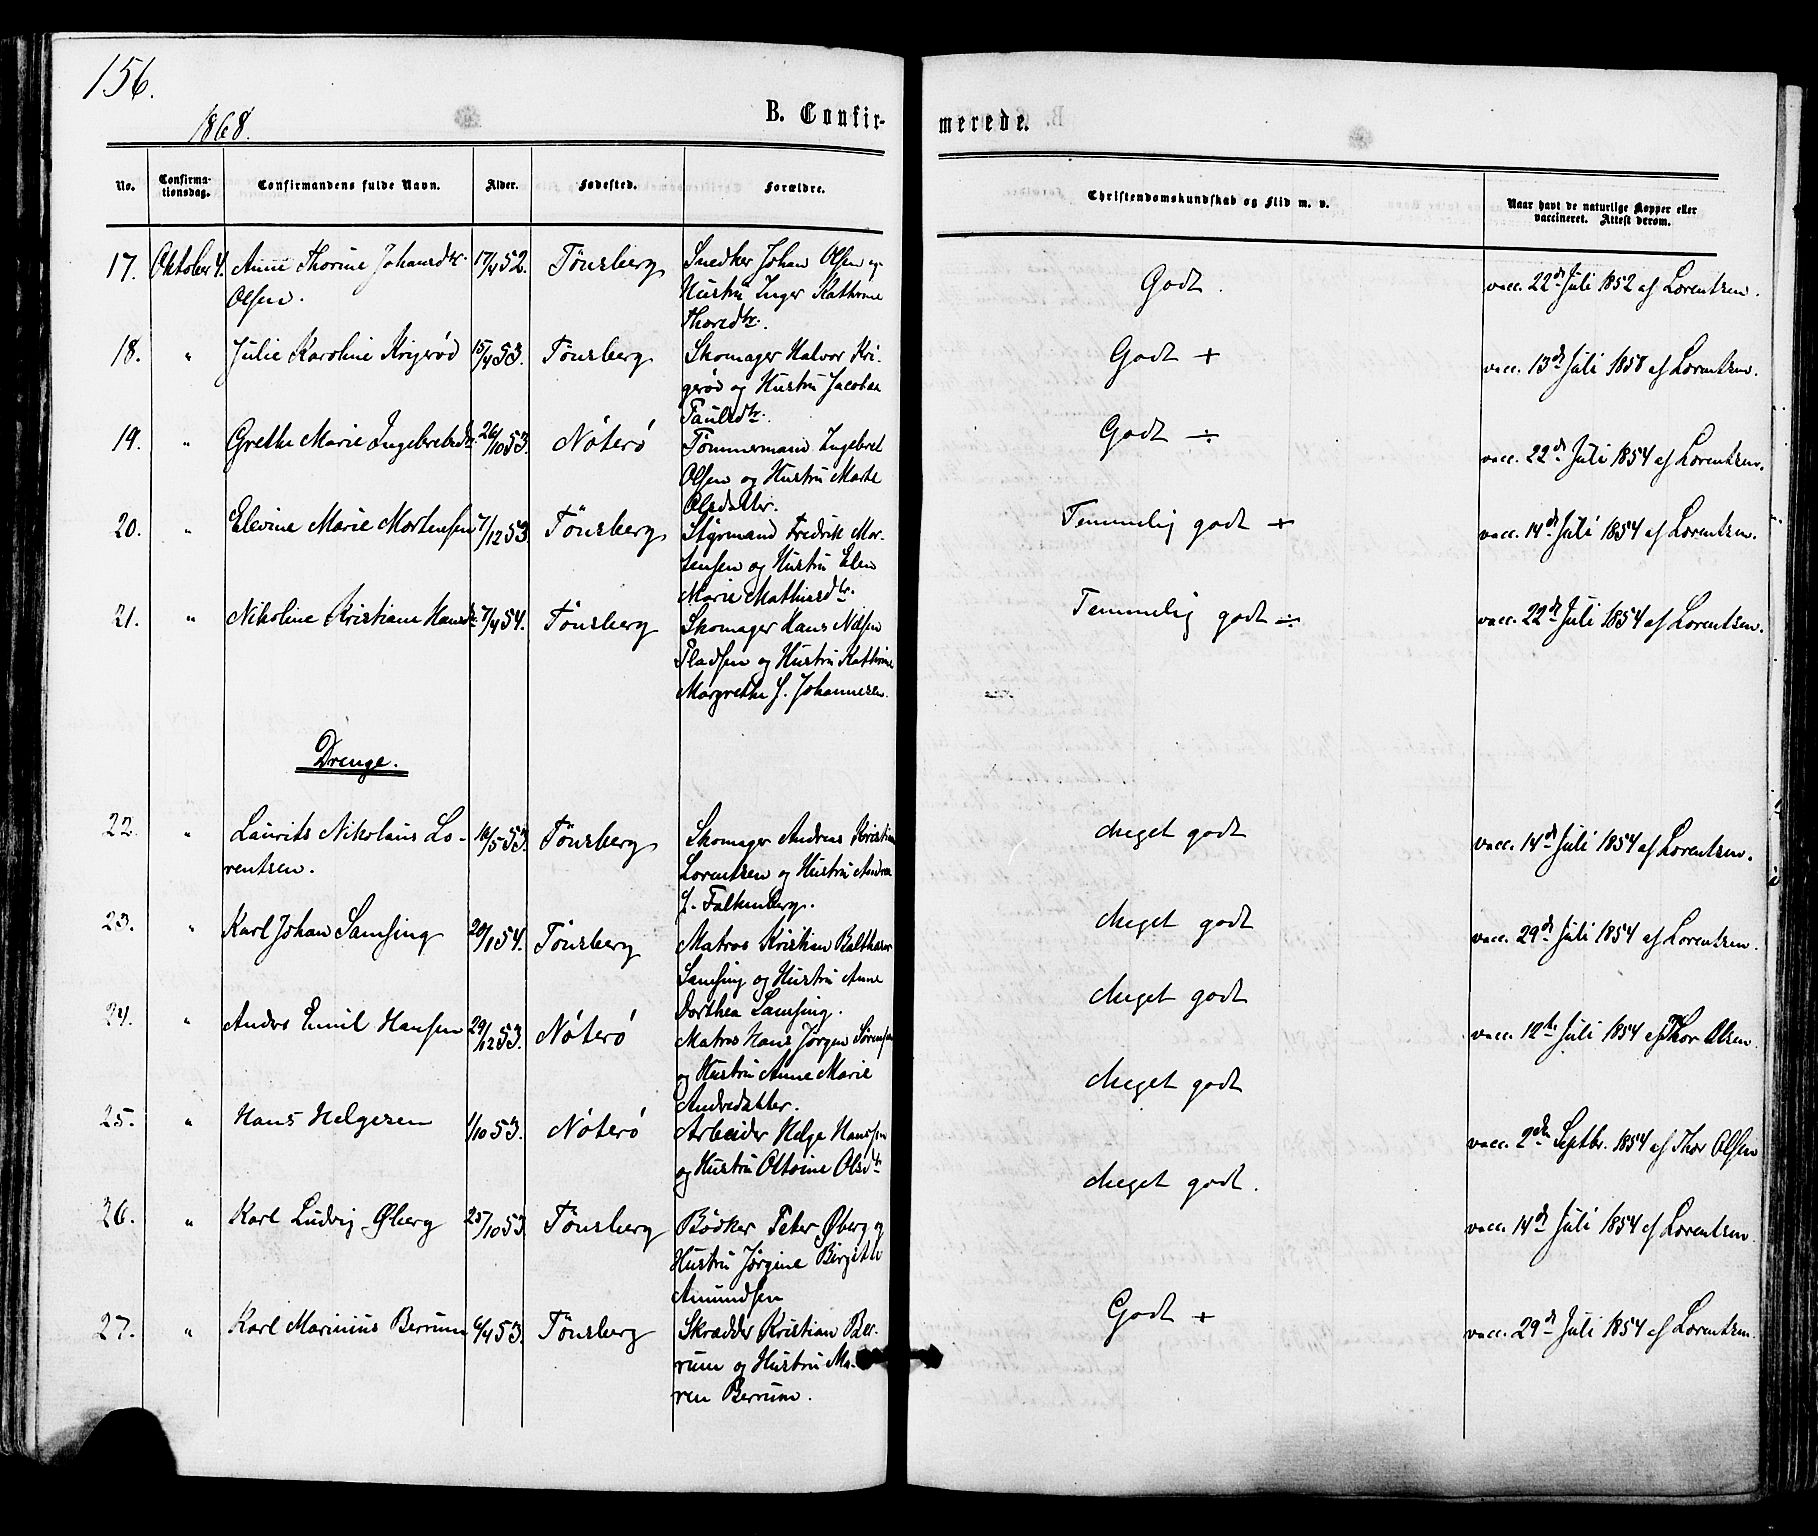 156.
1868.
B. Confirmerede.
No. Confirmationsdag. Confirmandens fulde Navn. Alder. Fødested. Forældre. Christendomskundskab og Flid m. v. Naar havt de naturlige Kopper eller vaccineret. Attest derom.
17. Oktober 4. Anne Thorine Johansdtr. 17/4 52. Tönsberg Snedker Johan Olsen og Godt. vacc. 22de Juli 1852 af Lorentsen.
Olsen. Hustru Inger Kathrine
Thoredtr.
18. " Julie Karoline Krigerød 15/4 53. Tönsberg Skomager Halvor Kri- Godt + vacc. 13de Juli 1858 af Lorentsen.
gerød og Hustru Jacobea
Paulsdtr.
19. " Grethe Marie Ingebretsdtr. 26/10 53. Nöterö Tömmermand Ingebret Godt ÷ vacc. 22de Juli 1854 af Lorentsen.
Olsen og Hustru Marte
Olsdatter.
20. " Elevine Marie Mortensen 7/12 53. Tönsberg Styrmand Fredrik Mor- Temmelig godt + vacc. 14de Juli 1854 af Lorentsen.
tensen og Hustru Elen
Marie Mathiasdtr.
21. " Nikoline Kristiane Hansdtr. 7/4 54. Tönsberg Skomager Hans Nilsen Temmelig godt ÷ vacc. 22de Juli 1854 af Lorentsen.
Pladsen og Hustru Kathrine
Margrethe J. Johannesen.
Drenge.
22. " Laurits Nikolaus Lo- 16/5 53. Tönsberg Skomager Andreas Kristian Meget godt vacc. 14de Juli 1854 af Lorentsen.
rentsen. Lorentsen og Hustru Andrea
L. Falkenberg.
23. " Karl Johan Samsing 20/1 54. Tönsberg Matros Kristian Balthasar Meget godt vacc. 29de Juli 1854 af Lorentsen.
Samsing og Hustru Anne
Dorthea Samsing.
24. " Anders Emil Hansen 29/12 53. Nöterö Matros Hans Jørgen Sörensen Meget godt vacc. 12te Juli 1854 af Thor Olsen
og Hustru Anne Marie
Andredatter.
25. " Hans Helgesen 1/10 53. Nöterö Arbeider Helge Hanssen Meget godt vacc. 2den Septbr. 1854 af Thor Olsen
og Hustru Oltine Olsdtr
26. " Karl Ludvig Øberg 25/10 53. Tönsberg Bödker Peter Øberg og Meget godt. vacc. 14de Juli 1854 af Lorentsen
Hustru Jørgine Birgitte
Amundsen
27. " Karl Marinius Berrum 6/4 53. Tönsberg Skrædder Kristian Ber- Godt + vacc. 29de Juli 1854 af Lorentsen
rum og Hustru Ma-
ren Berrum.